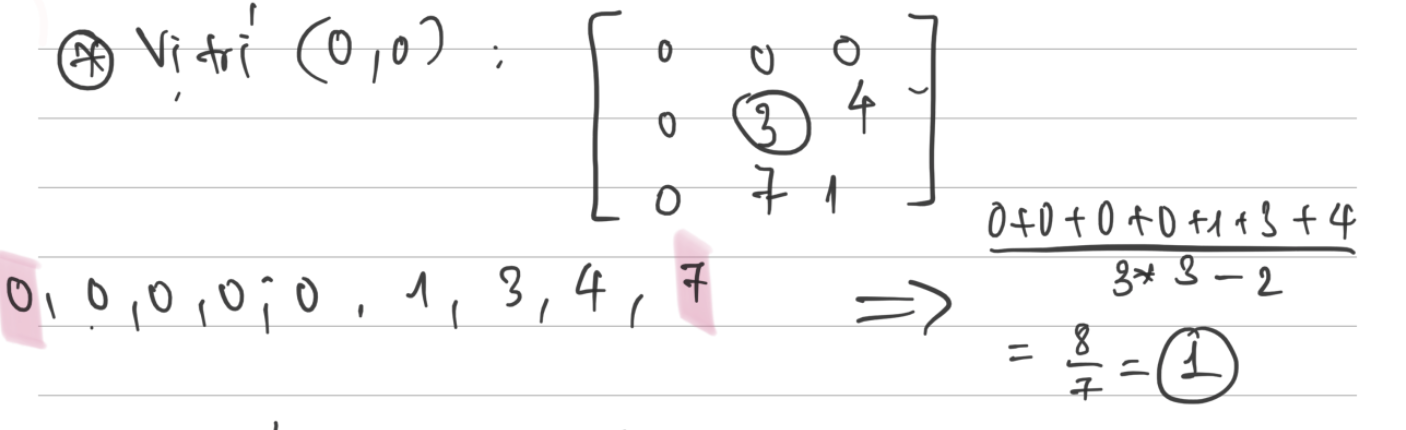 ⊛ Vị trí (0,0) : [ 0 0 0
0 3 4
0 7 1 ]
0+0+0+0+1+3+4
0, 0, 0, 0, 0, 1, 3, 4, 7 =>
3*3-2
= 8/7 = 1